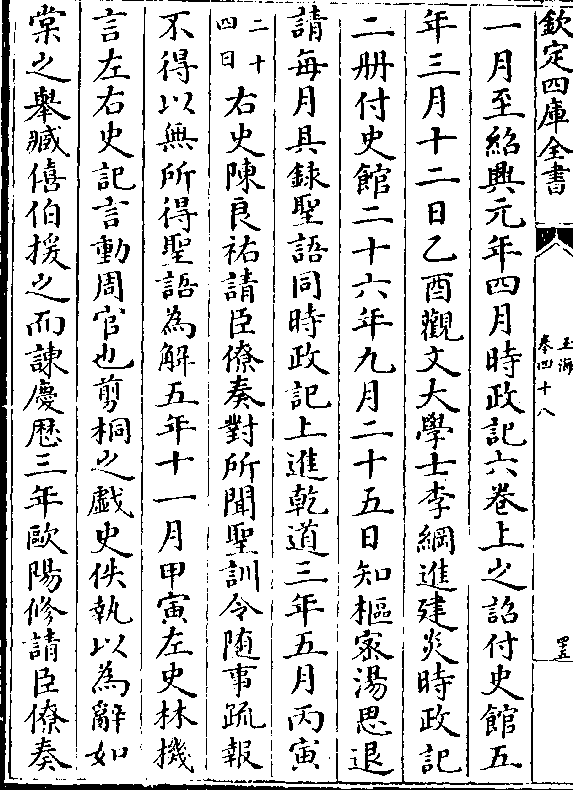 欽定四庫全書
玉海
卷四十八
罢
一月至紹興元年四月時政記六卷上之詔付史館五
年三月十二日乙酉觀文大學士李綱進建炎時政記
二册付史館二十六年九月二十五日知樞宻湯思退
請每月具録聖語同時政記上進乾道三年五月丙寅
二十四日右史陳良祐請臣僚奏對所聞聖訓令随事疏報
不得以無所得聖語為解五年十一月甲寅左史林機
言左右史記言動周官也剪桐之戲史佚執以為辭如
棠之舉臧僖伯援之而諫慶歴三年歐陽修請臣僚奏